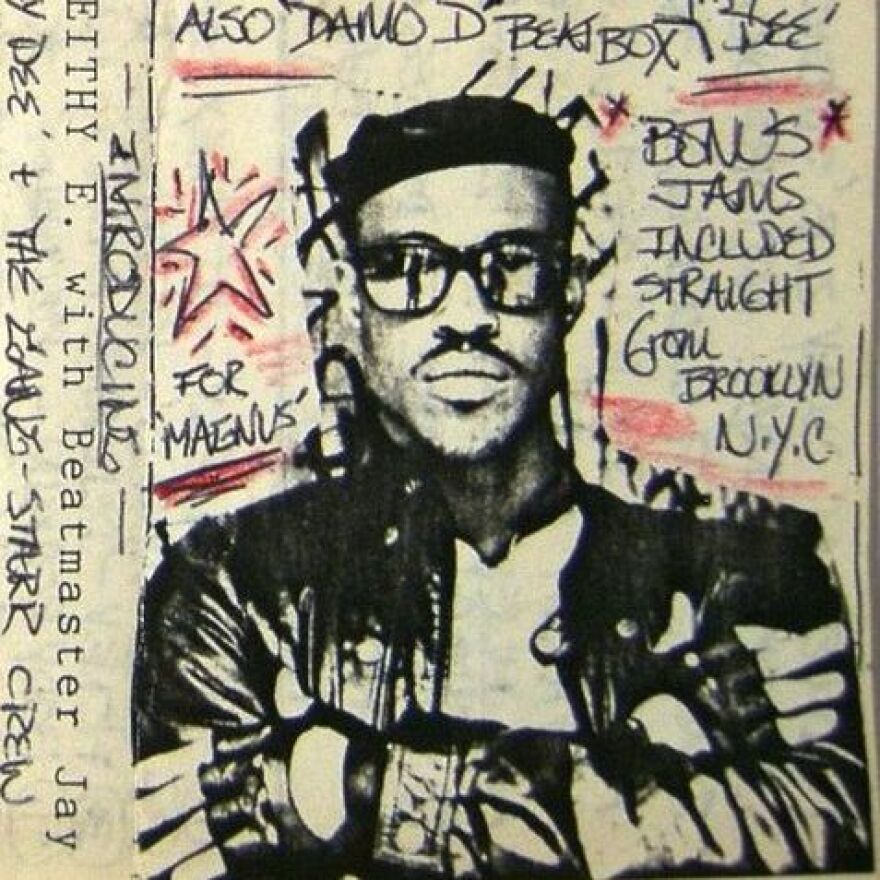 ALSO 'DAMO D' BEAT BOX
DEE'
BONUS
JAMS
INCLUDED
STRAIGHT
from
BROOKLYN
N.Y.C.
FOR
'MAGNUS'
INTRODUCING
EITHY E. with Beatmaster Jay
Y DEE' + THE GANG-STARR CREW